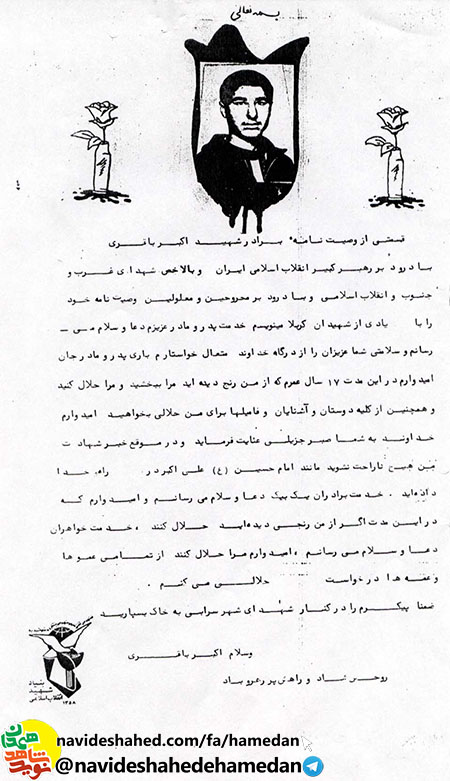 بسمه تعالی
قسمتی از وصیت نامه برادر شهید اکبر باقری
با درود بر رهبر کبیر انقلاب اسلامی ایران و بالاخص شهدای غرب و
جنوب و انقلاب اسلامی و با درود بر مجروحین و معلولین وصیت نامه خود
را با یادی از شهیدان کربلا مینویسم خدمت پدر و مادر عزیزم دعا و سلام می ـ
رسانم و سلامتی شما عزیزان را از درگاه خداوند متعال خواستارم باری پدر و مادر جان
امیدوارم در این مدت ۱۷ سال عمرم که از من رنج دیده اید مرا ببخشید و مرا حلال کنید
و همچنین از کلیه دوستان و آشنایان و فامیلها برای من حلالی بخواهید امیدوارم
خداوند به شما صبر جزیلی عنایت فرماید و در موقع خبر شهادت
من هیچ ناراحت نشوید مانند امام حسین (ع) علی اکبر در راه خدا
داده اید . خدمت برادران یک بیک دعا و سلام می رسانم و امیدوارم که
در این مدت اگر از من رنجی دیده اید حلال کنند ، خدمت خواهران
دعا و سلام می رسانم ، امیدوارم مرا حلال کنند از تمامی عموها
و عمه ها درخواست حلالی می کنم .
ضمنا پیکرم را در کنار شهدای شهر سرابی به خاک بسپارید
وسلام اکبر باقری
روحش شاد و راهش پر رهرو باد
بنیاد
شهید
انقلاب اسلامی
۱۳۵۸
نوید شاهد همدان
navideshahed.com/fa/hamedan
@navideshahedehamedan